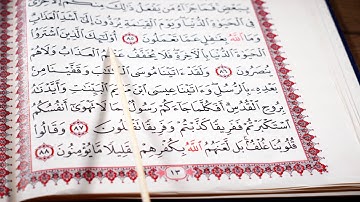 بِبَعْضٍ فَمَا جَزَآءُ مَن يَفْعَلُ ذَٰلِكَ مِنكُمْ إِلَّا خِزْىٌ
فِى ٱلْحَيَوٰةِ ٱلدُّنْيَا وَيَوْمَ ٱلْقِيَٰمَةِ يُرَدُّونَ إِلَىٰٓ أَشَدِّ ٱلْعَذَابِ
وَمَا ٱللَّهُ بِغَٰفِلٍ عَمَّا تَعْمَلُونَ ٨٥ أُو۟لَٰٓئِكَ ٱلَّذِينَ
ٱلْحَيَوٰةَ ٱلدُّنْيَا بِٱلْءَاخِرَةِ فَلَا يُخَفَّفُ عَنْهُمُ ٱلْعَذَابُ وَلَا هُمْ
يُنصَرُونَ ٨٦ وَلَقَدْ ءَاتَيْنَا مُوسَى ٱلْكِتَٰبَ وَقَفَّيْنَا مِنۢ
بَعْدِهِۦ بِٱلرُّسُلِ وَءَاتَيْنَا عِيسَى ٱبْنَ مَرْيَمَ ٱلْبَيِّنَٰتِ وَأَيَّدْنَٰهُ
بِرُوحِ ٱلْقُدُسِ أَفَكُلَّمَا جَآءَكُمْ رَسُولٌۢ بِمَا لَا تَهْوَىٰٓ أَنفُسُكُمُ
ٱسْتَكْبَرْتُمْ فَفَرِيقًا كَذَّبْتُمْ وَفَرِيقًا تَقْتُلُونَ ٨٧ وَقَالُوا۟
قُلُوبُنَا غُلْفٌۢ بَل لَّعَنَهُمُ ٱللَّهُ بِكُفْرِهِمْ فَقَلِيلًا مَّا يُؤْمِنُونَ ٨٨
١٣